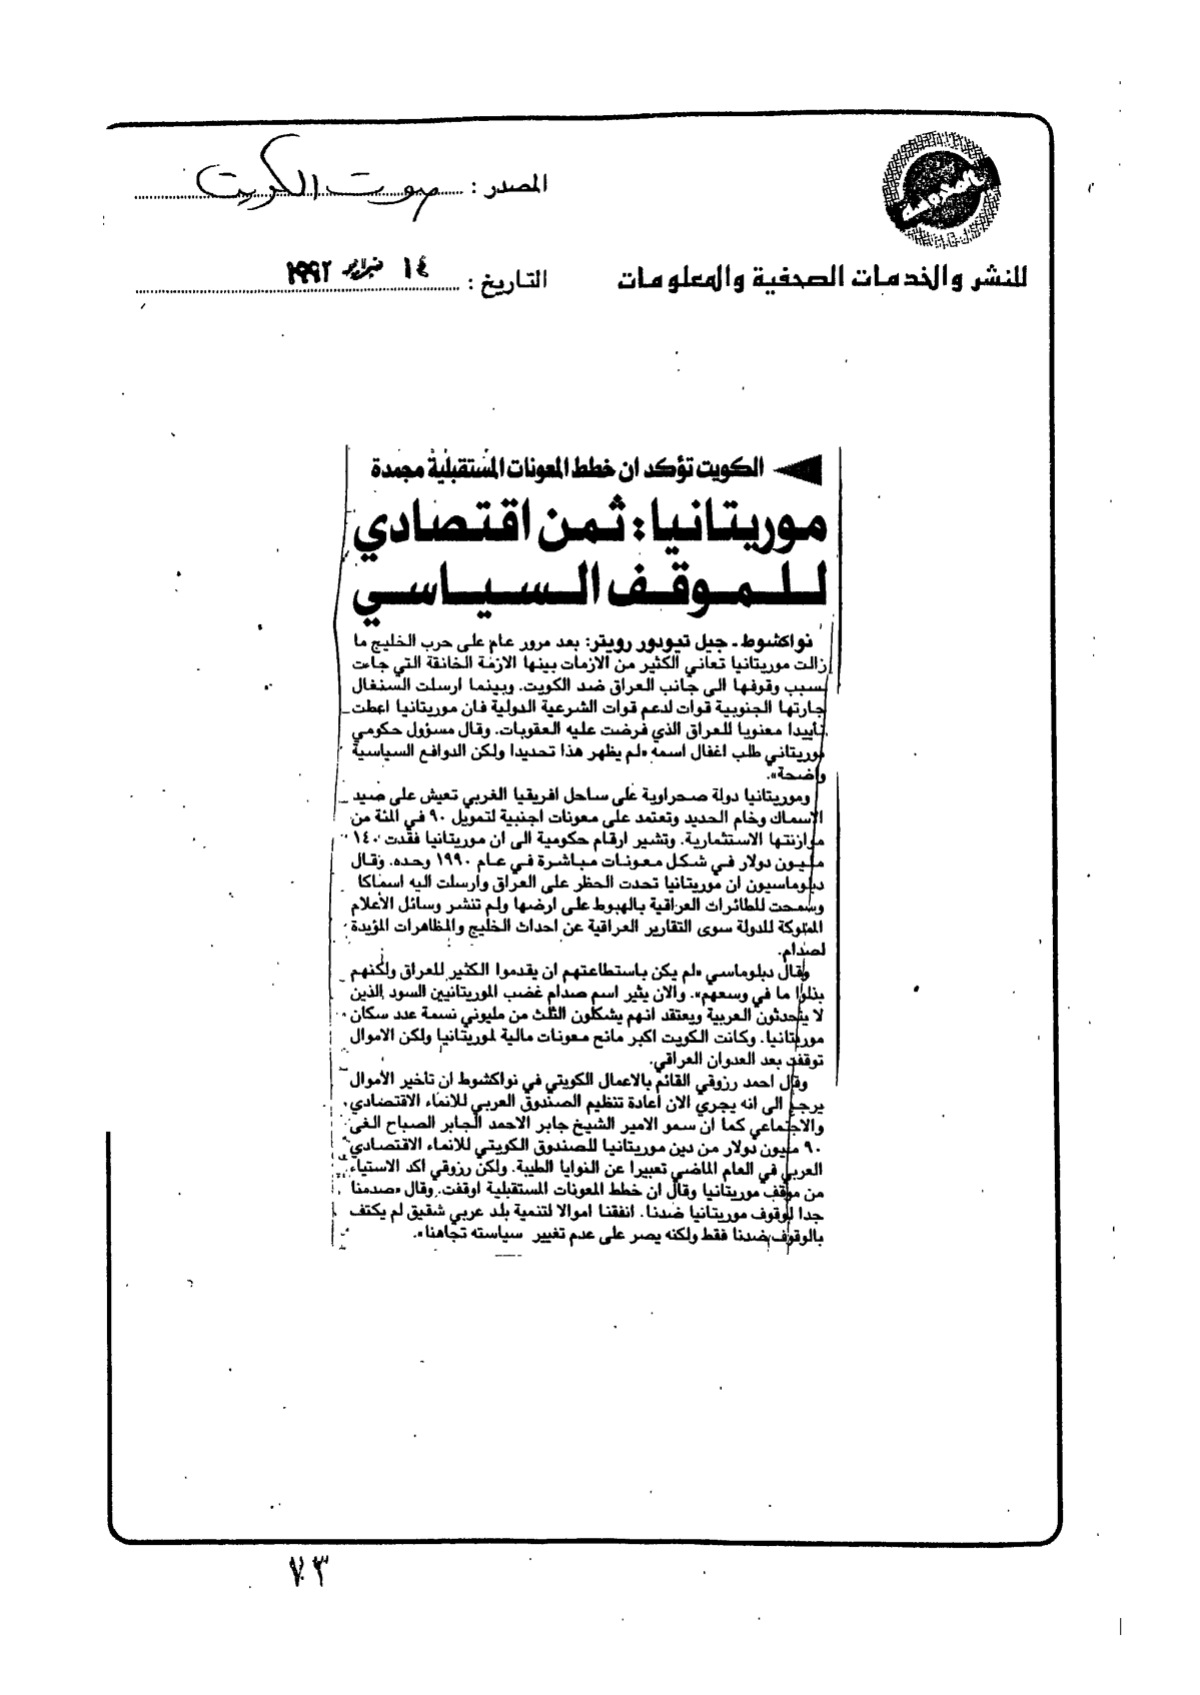 المصدر : صوت الكويت
للنشر والخدمات الصحفية والمعلومات
التاريخ : ١٤ فبراير ١٩٩٢
الكويت تؤكد ان خطط المعونات المستقبلية مجمدة
موريتانيا: ثمن اقتصادي
للموقف السياسي
نواكشوط ـ جيل تيودور رويتر: بعد مرور عام على حرب الخليج ما
زالت موريتانيا تعاني الكثير من الازمات بينها الازمة الخانقة التي جاءت
بسبب وقوفها الى جانب العراق ضد الكويت. وبينما ارسلت السنغال
جارتها الجنوبية قوات لدعم قوات الشرعية الدولية فان موريتانيا اعطت
تأييدا معنويا للعراق الذي فرضت عليه العقوبات. وقال مسؤول حكومي
موريتاني طلب اغفال اسمه «لم يظهر هذا تحديدا ولكن الدوافع السياسية
واضحة».
وموريتانيا دولة صحراوية على ساحل افريقيا الغربي تعيش على صيد
الاسماك وخام الحديد وتعتمد على معونات اجنبية لتمويل ٩٠ في المئة من
موازنتها الاستثمارية. وتشير ارقام حكومية الى ان موريتانيا فقدت ١٤٠
مليون دولار في شكل معونات مباشرة في عام ١٩٩٠ وحده. وقال
دبلوماسيون ان موريتانيا تحدت الحظر على العراق وارسلت اليه اسماكا
وسمحت للطائرات العراقية بالهبوط على ارضها ولم تنشر وسائل الأعلام
المملوكة للدولة سوى التقارير العراقية عن احداث الخليج والمظاهرات المؤيدة
لصدام.
وقال دبلوماسي «لم يكن باستطاعتهم ان يقدموا الكثير للعراق ولكنهم
بذلوا ما في وسعهم». والان يثير اسم صدام غضب الموريتانيين السود الذين
لا يتحدثون العربية ويعتقد انهم يشكلون الثلث من مليوني نسمة عدد سكان
موريتانيا. وكانت الكويت اكبر مانح معونات مالية لموريتانيا ولكن الاموال
توقفت بعد العدوان العراقي.
وقال احمد رزوقي القائم بالاعمال الكويتي في نواكشوط ان تأخير الأموال
يرجع الى انه يجري الان اعادة تنظيم الصندوق العربي للانماء الاقتصادي
والاجتماعي كما ان سمو الامير الشيخ جابر الاحمد الجابر الصباح الغى
٩٠ مليون دولار من دين موريتانيا للصندوق الكويتي للانماء الاقتصادي
العربي في العام الماضي تعبيرا عن النوايا الطيبة. ولكن رزوقي اكد الاستياء
من موقف موريتانيا وقال ان خطط المعونات المستقبلية اوقفت. وقال «صدمنا
جدا لوقوف موريتانيا ضدنا. انفقنا اموالا لتنمية بلد عربي شقيق لم يكتف
بالوقوف ضدنا فقط ولكنه يصر على عدم تغيير سياسته تجاهنا».
٧٣